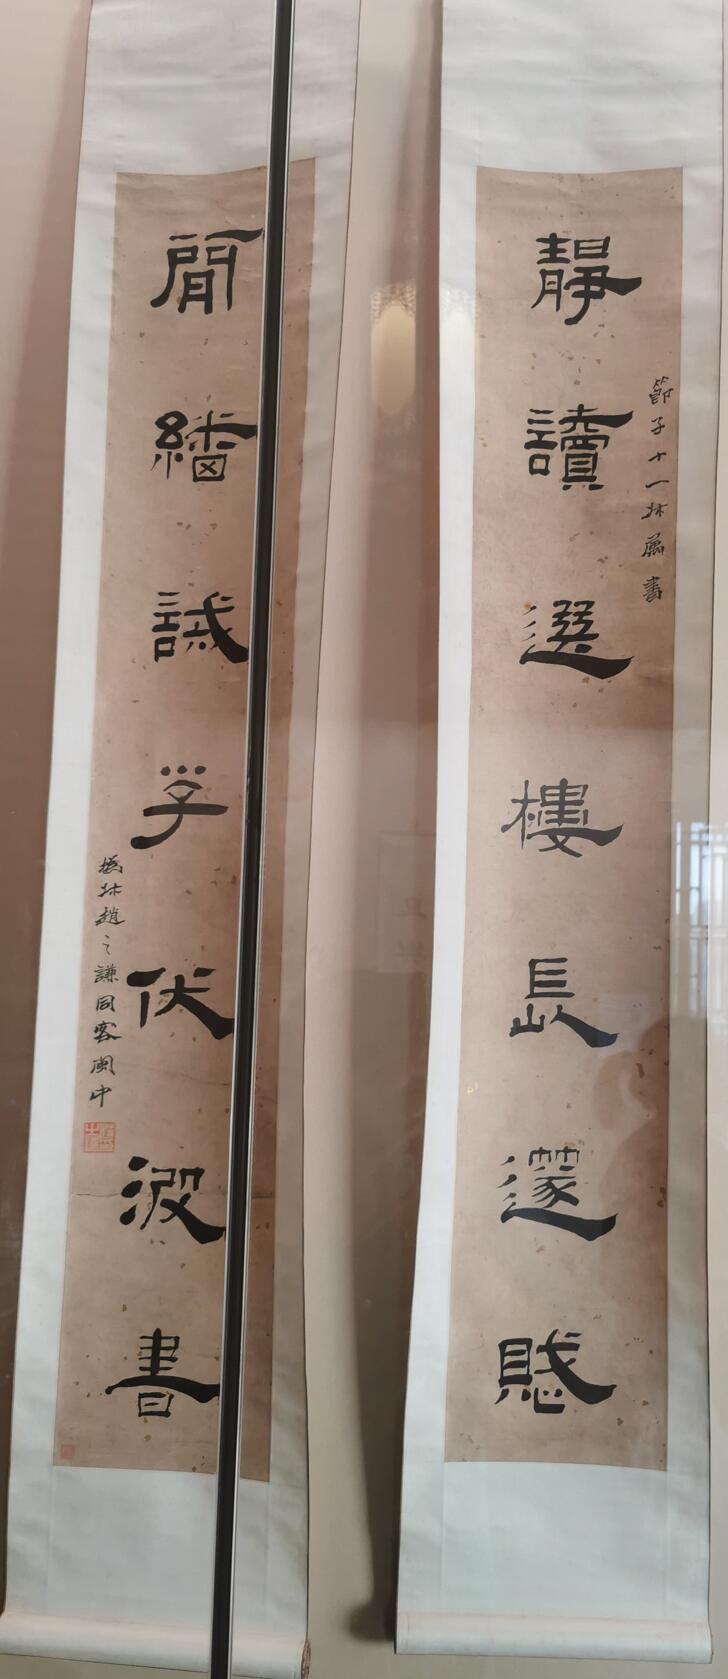 靜讀選樓長邃賦
節子十一兄屬書
閒繙誡子伏波書
撝叔趙之謙同客閩中